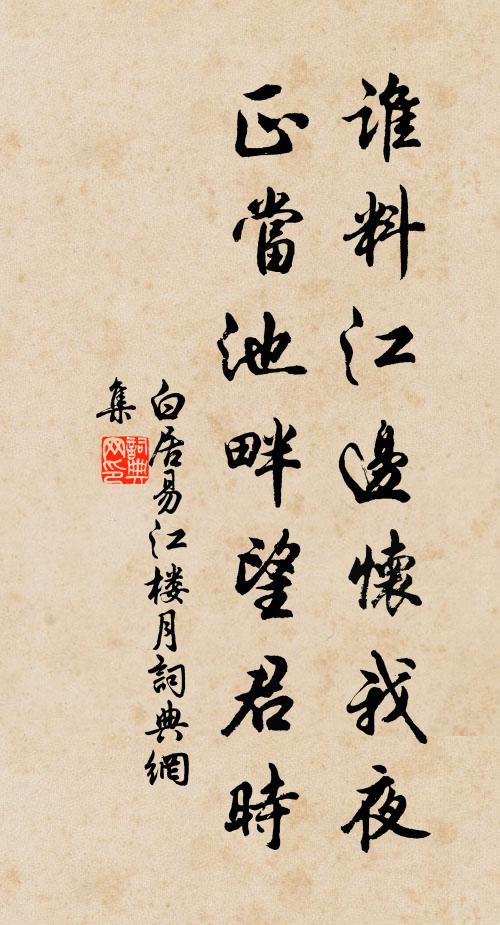 誰料江邊懷我夜
正當池畔望君時
白居易江楼月詞典網
集
詞典网印